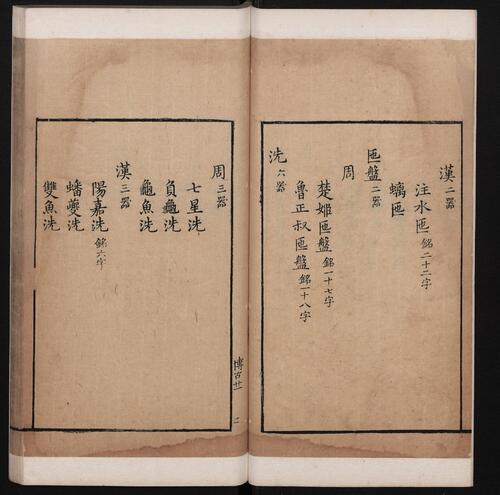 漢二器
注水匜銘二十二字
螭匜
匜盤二器
周
楚姬匜盤銘一十七字
魯正叔匜盤銘一十八字
洗六器
博古廿一
周三器
七星洗
負龜洗
龜魚洗
漢三器
陽嘉洗銘六字
蟠夔洗
雙魚洗